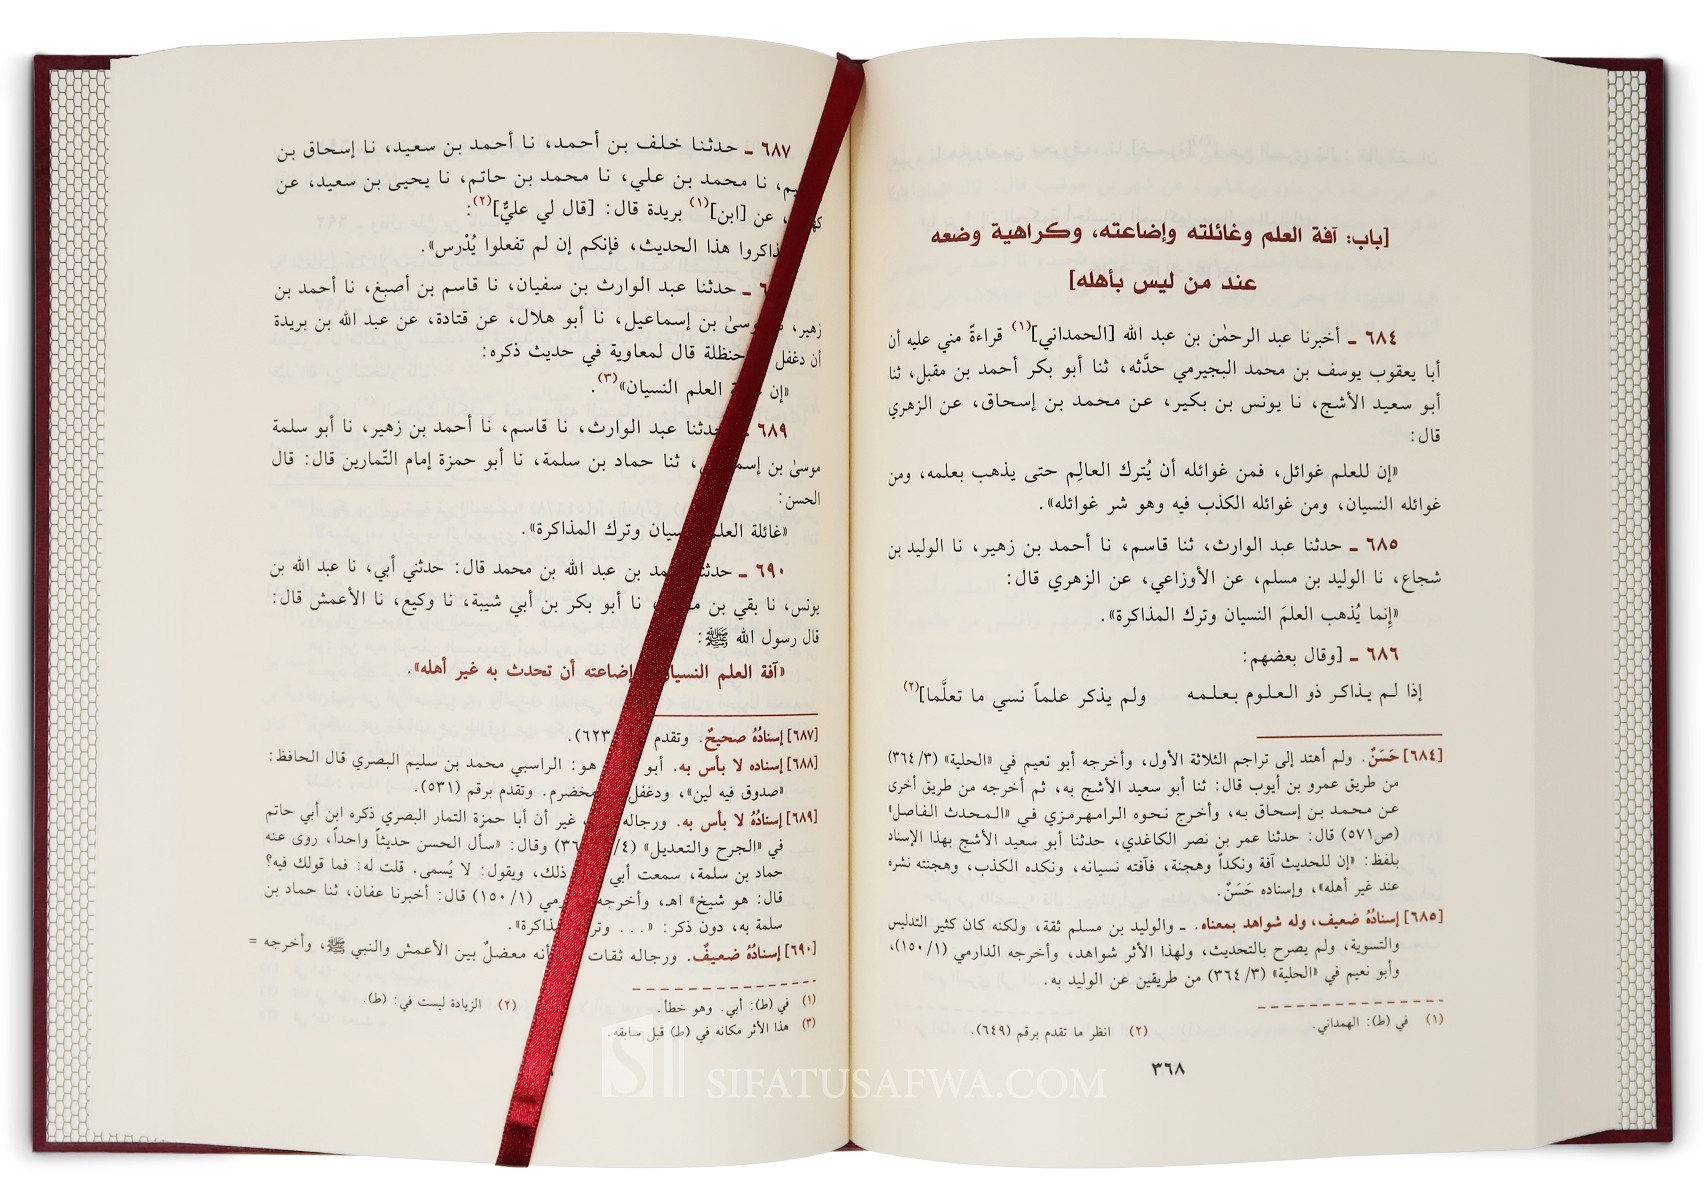 [باب: آفة العلم وغائلته وإضاعته، وكراهية وضعه
عند من ليس بأهله]
٦٨٤ ـ أخبرنا عبد الرحمٰن بن عبد الله [الحمداني](١) قراءةً مني عليه أن
أبا يعقوب يوسف بن محمد البجيرمي حدَّثه، ثنا أبو بكر أحمد بن مقبل، ثنا
أبو سعيد الأشج، نا يونس بن بكير، عن محمد بن إسحاق، عن الزهري
قال:
«إن للعلم غوائل، فمن غوائله أن يُترك العالِم حتى يذهب بعلمه، ومن
غوائله النسيان، ومن غوائله الكذب فيه وهو شر غوائله».
٦٨٥ ـ حدثنا عبد الوارث، ثنا قاسم، نا أحمد بن زهير، نا الوليد بن
شجاع، نا الوليد بن مسلم، عن الأوزاعي، عن الزهري قال:
«إنما يُذهب العلمَ النسيان وترك المذاكرة».
٦٨٦ ـ [وقال بعضهم:
إذا لم يذاكر ذو العلوم بعلمه ولم يذكر علماً نسي ما تعلَّما](٢)
[٦٨٤] حَسَنٌ. ولم أهتد إلى تراجم الثلاثة الأول، وأخرجه أبو نعيم في «الحلية» (٣/ ٣٦٤)
من طريق عمرو بن أيوب قال: ثنا أبو سعيد الأشج به، ثم أخرجه من طريق أخرى
عن محمد بن إسحاق به، وأخرج نحوه الرامهرمزي في «المحدث الفاصل»
(ص٥٧١) قال: حدثنا عمر بن نصر الكاغدي، حدثنا أبو سعيد الأشج بهذا الإسناد
بلفظ: «إن للحديث آفة ونكداً وهجنة، فآفته نسيانه، ونكده الكذب، وهجنته نشره
عند غير أهله»، وإسناده حَسَنٌ.
[٦٨٥] إسنادُهُ ضعيف، وله شواهد بمعناه. ـ والوليد بن مسلم ثقة، ولكنه كان كثير التدليس
والتسوية، ولم يصرح بالتحديث، ولهذا الأثر شواهد، وأخرجه الدارمي (١/ ١٥٠)،
وأبو نعيم في «الحلية» (٣/ ٣٦٤) من طريقين عن الوليد به.
(١) في (ط): الهمداني. (٢) انظر ما تقدم برقم (٦٤٩).
٣٦٨
٦٨٧ ـ حدثنا خلف بن أحمد، نا أحمد بن سعيد، نا إسحاق بن
نا محمد بن علي، نا محمد بن حاتم، نا يحيى بن سعيد، عن
عن [ابن](١) بريدة قال: [قال لي عليٌّ](٢):
هذا الحديث، فإنكم إن لم تفعلوا يُدْرس».
ـ حدثنا عبد الوارث بن سفيان، نا قاسم بن أصبغ، نا أحمد بن
زهير، بن إسماعيل، نا أبو هلال، عن قتادة، عن عبد الله بن بريدة
أن دغفل حنظلة قال لمعاوية في حديث ذكره:
«إن العلم النسيان»(٣).
٦٨٩ عبد الوارث، نا قاسم، نا أحمد بن زهير، نا أبو سلمة
موسىٰ بن ثنا حماد بن سلمة، نا أبو حمزة إمام التّمارين قال: قال
الحسن:
«غائلة وترك المذاكرة».
٦٩٠ ـ بن عبد الله بن محمد قال: حدثني أبي، نا عبد الله بن
يونس، نا بقي بن نا أبو بكر بن أبي شيبة، نا وكيع، نا الأعمش قال:
قال رسول الله ﷺ:
«آفة العلم وإضاعته أن تحدث به غير أهله».
[٦٨٧] إسنادُهُ صحيحٌ. وتقدم ٦٢٣).
[٦٨٨] إسناده لا بأس به. أبو هو: الراسبي محمد بن سليم البصري قال الحافظ:
«صدوق فيه لين»، ودغفل مخضرم. وتقدم برقم (٥٣١).
[٦٨٩] إسنادُهُ لا بأس به. ورجاله غير أن أبا حمزة التمار البصري ذكره ابن أبي حاتم
في «الجرح والتعديل» (٤/ وقال: «سأل الحسن حديثاً واحداً، روى عنه
حماد بن سلمة، سمعت أبي ذلك، ويقول: لا يُسمى. قلت له: فما قولك فيه؟
قال: هو شيخ» اهـ، وأخرجه (١/ ١٥٠) قال: أخبرنا عفان، ثنا حماد بن
سلمة به، دون ذكر: «... المذاكرة».
[٦٩٠] إسنادُهُ ضعيفٌ. ورجاله ثقات معضلٌ بين الأعمش والنبي ﷺ، وأخرجه =
(١) في (ط): أبي. وهو خطأ. (٢) الزيادة ليست في: (ط).
(٣) هذا الأثر مكانه في (ط) قبل سابقه.
SIFATUSAFWA.COM